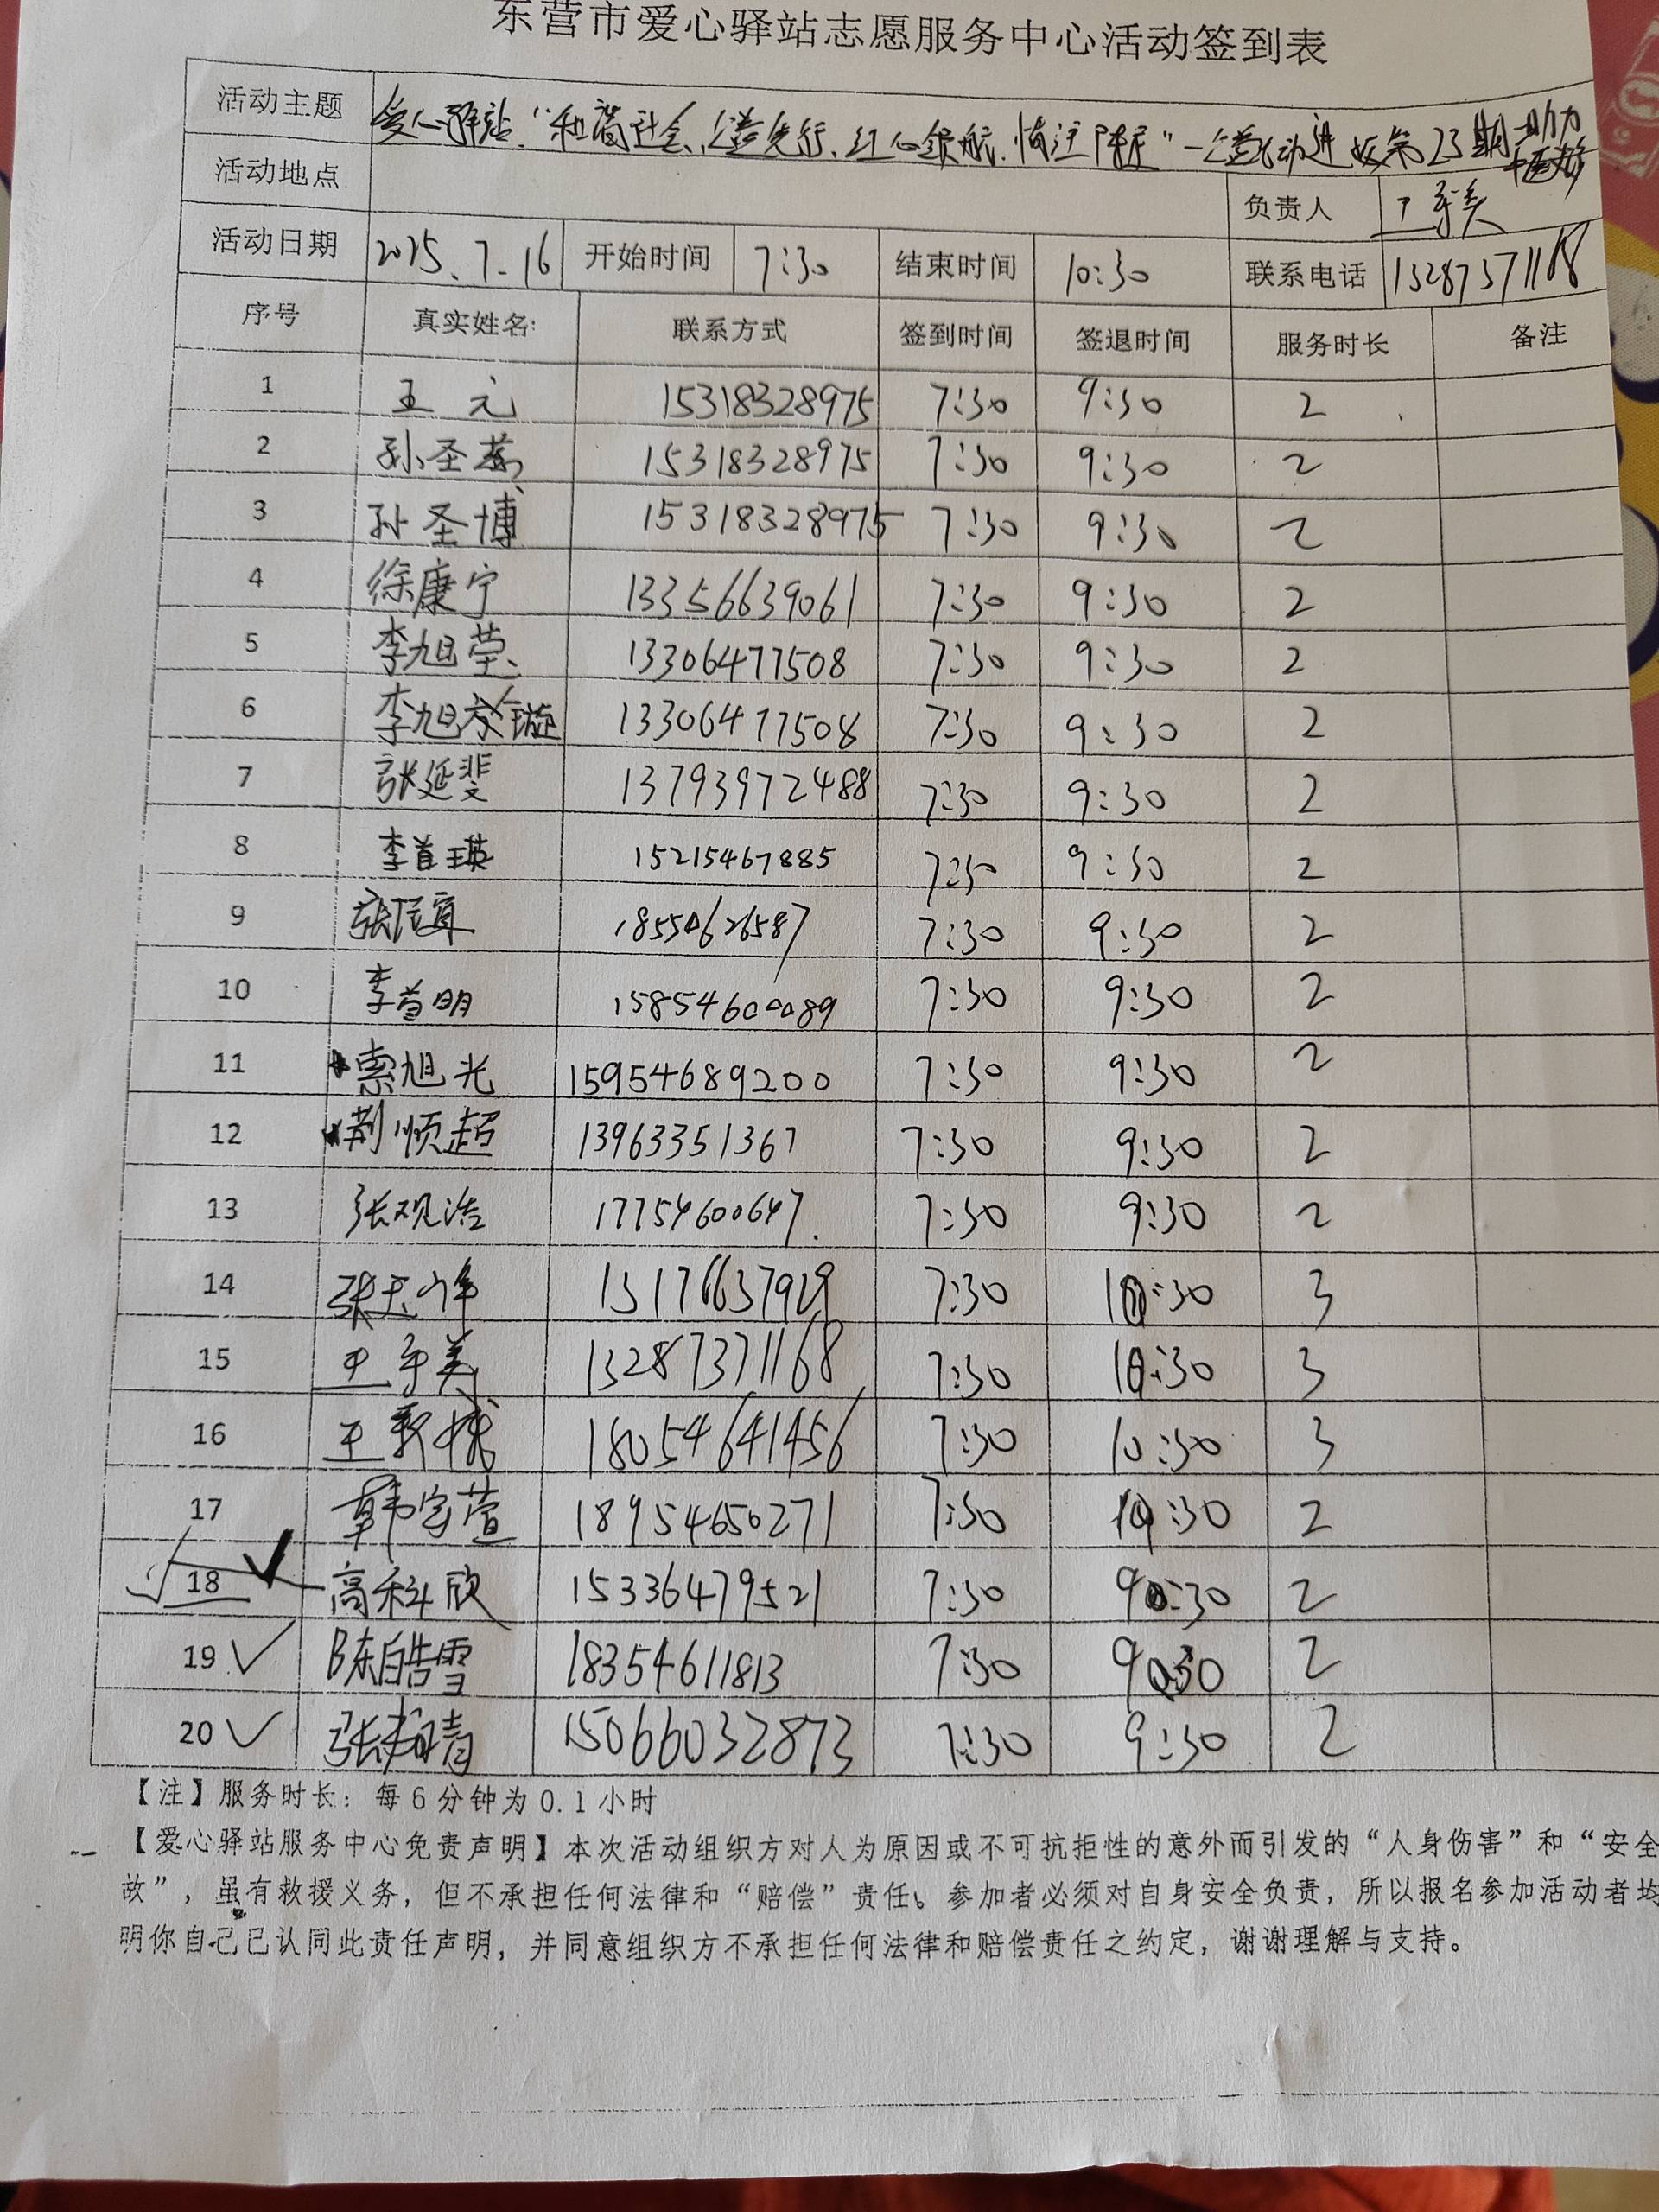 东营市爱心驿站志愿服务中心活动签到表
活动主题 爱心驿站"和谐社会、公益先行、红心领航、情注"—公益活动进 第23期 助力
活动地点 负责人 王守美
活动日期 2025.7.16 开始时间 7:30 结束时间 10:30 联系电话 13287371168
序号 真实姓名: 联系方式 签到时间 签退时间 服务时长 备注
1 王元 15318328975 7:30 9:30 2
2 孙圣茹 15318328975 7:30 9:30 2
3 孙圣博 15318328975 7:30 9:30 2
4 徐康宁 13356639061 7:30 9:30 2
5 李旭莹 13306477508 7:30 9:30 2
6 李旭镟 13306477508 7:30 9:30 2
7 张延斐 13793972488 7:30 9:30 2
8 李首瑛 15215467885 7:30 9:30 2
9 张 18550626587 7:30 9:30 2
10 李首明 15854600089 7:30 9:30 2
11 索旭光 15954689200 7:30 9:30 2
12 荆顺超 13963351367 7:30 9:30 2
13 张观浩 17754600647. 7:30 9:30 2
14 张天 7:30 10:30 3
15 王守美 13287371168 7:30 10:30 3
16 王 18054641456 7:30 10:30 3
17 韩宝萱 18954650271 7:30 10:30 2
18 高科欣 15336479521 7:30 9:30 2
19 陈皓雪 18354611813 7:30 9:30 2
20 张 晴 15066032873 7:30 9:30 2
【注】服务时长：每6分钟为0.1小时
【爱心驿站服务中心免责声明】本次活动组织方对人为原因或不可抗拒性的意外而引发的“人身伤害”和“安全
故”，虽有救援义务，但不承担任何法律和“赔偿”责任。参加者必须对自身安全负责，所以报名参加活动者均
明你自己已认同此责任声明，并同意组织方不承担任何法律和赔偿责任之约定，谢谢理解与支持。